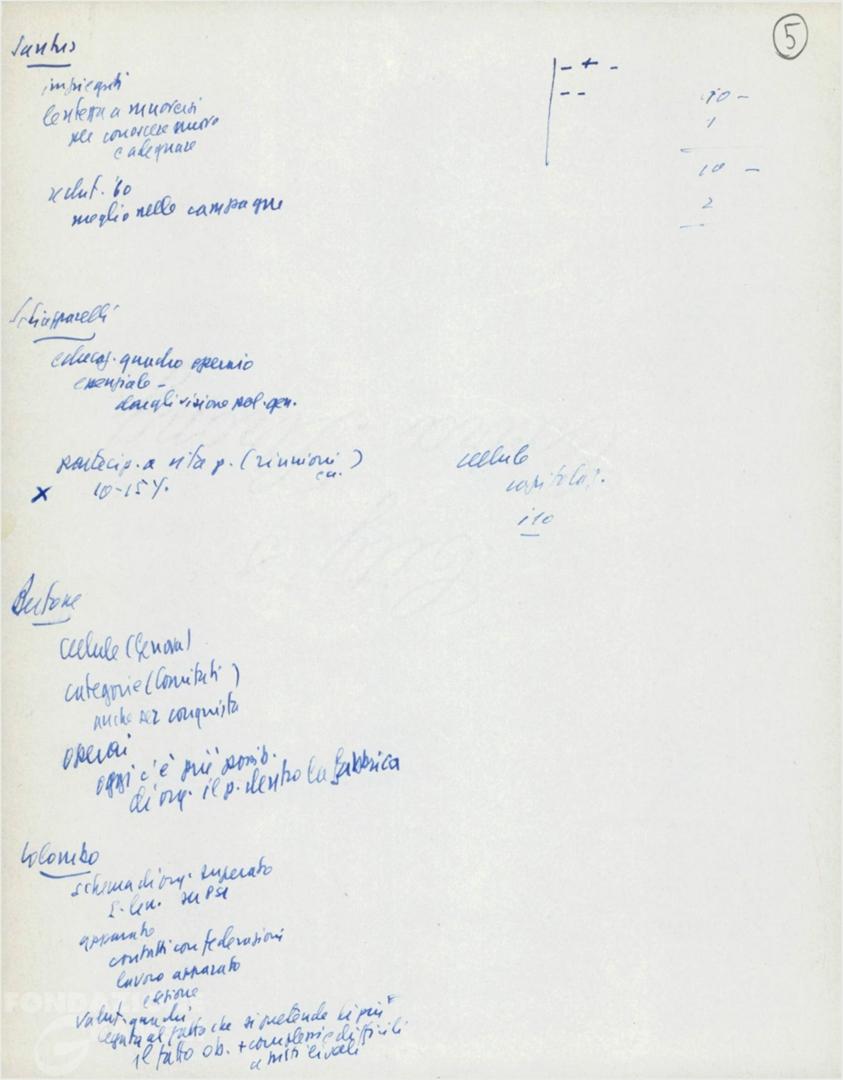 5
impiegati
lentezza a muoversi
per conoscere nuovo
e adeguare
reclut. '60
meglio nelle campagne
- + -
- -
10 -
1
10 -
2
Schiapparelli
educaz. quadro operaio
essenziale -
dargli visione pol. gen.
partecip. a vita p. (riunioni)
x 10-15%
cellule
capitolaz.
Bertone
cellule (Genova)
categorie (Comitati)
anche per conquista
operai
oggi c'è più possib.
di org. il p. dentro la fabbrica
Colombo
schema di org. superato
su PSI
apparato
contatti con federazioni
lavoro apparato
valut. quadri
legata al fatto che si pretende di più
il fatto ob. + complessi e difficili
FONDAZIONE